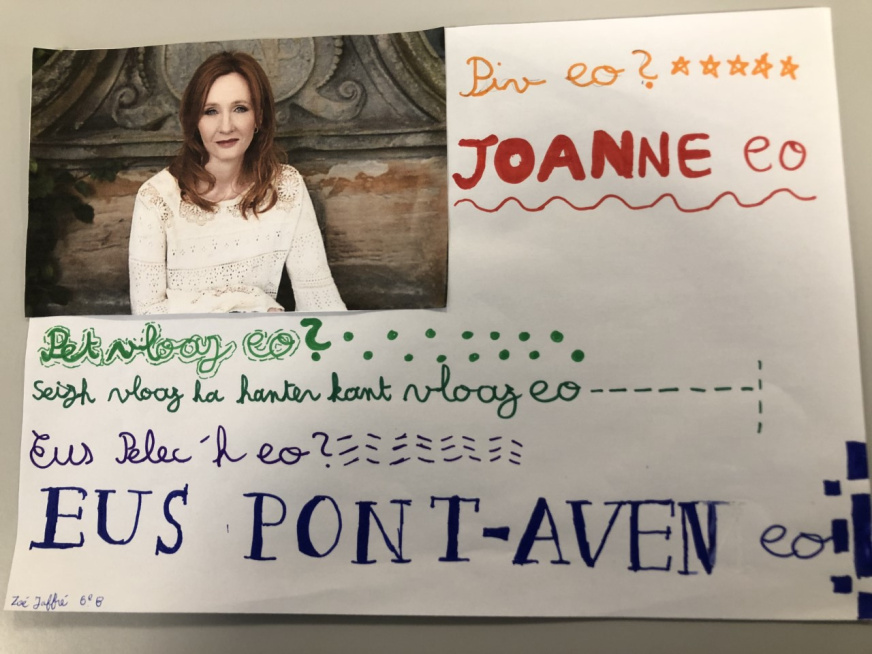 Piv eo?
JOANNE eo
Pet vloaz eo?
Seizh vloaz ha hanter kant vloaz eo
Eus Pelec'h eo?
EUS PONT-AVEN eo
Zoé Jaffré 6e B